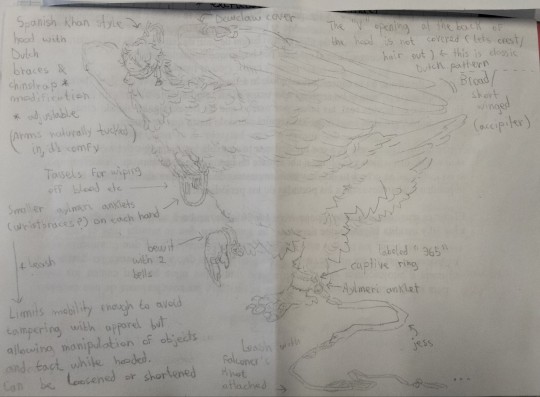 Spanish Khan style
hood with
Dutch
braces &
chinstrap *
modification
* adjustable
(Arms naturally tucked
in, it's comfy
Dewclaw cover
The opening at the back of
the hood is not covered (lets crest/
hair out) & this is classic
Dutch pattern
Broad/
short
winged
(accipiter)
Tassels for wiping
off blood etc
Smaller aylmeri anklets
(wristbraces?) on each hand
* leash
bewit
with 2
bells
labeled "365"
captive ring
Aylmeri anklet
jess
Limits mobility enough to avoid
tampering with apparel but
allowing manipulation of objects
and fast while hooded.
Can be loosened or shortened
Leash with
falconer's
knot
attached
...